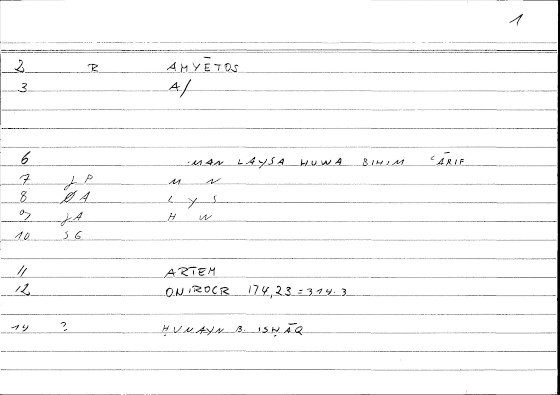 1
2 R AMYĒTOS
3 A/
6 MAN LAYSA HUWA BIHIM ʿĀRIF
7 JP M N
8 ØA L Y S
9 JA H W
10 SG
11 ARTEM
12 ONIROCR 174,23 = 314.3
14 ? ḤUNAYN B. ISḤĀQ